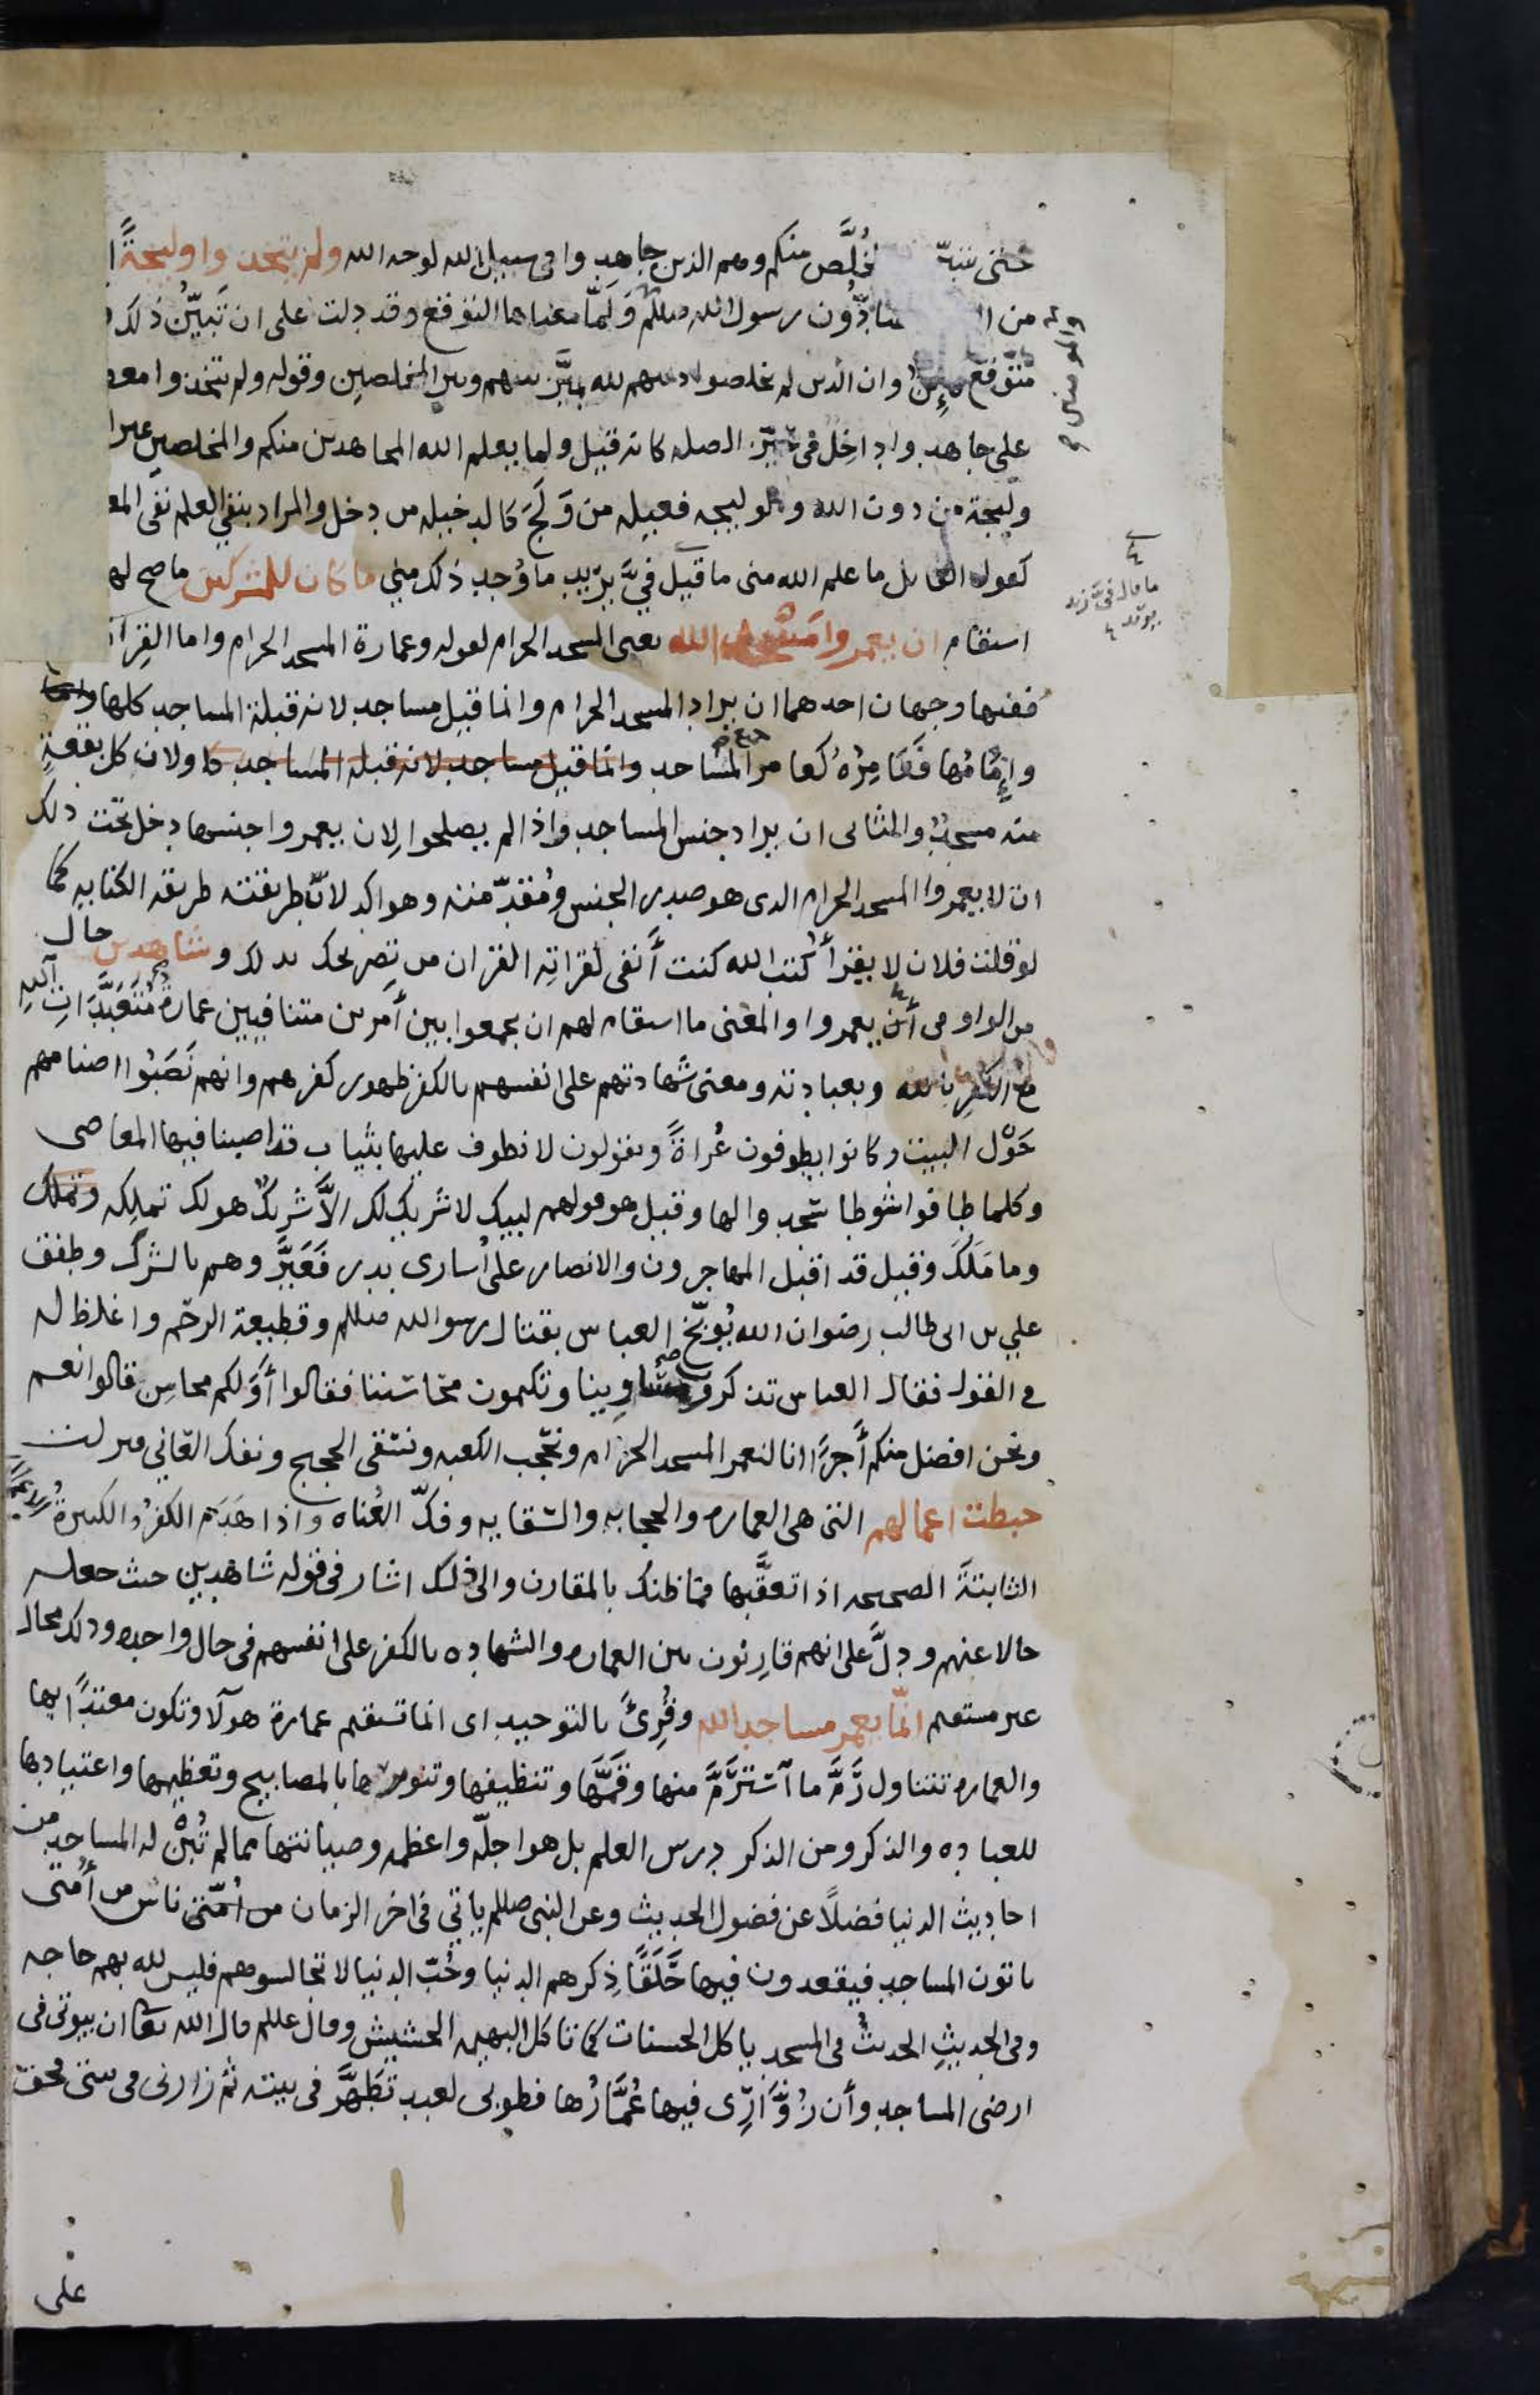 حتى يتبيّن الخُلَّص منكم وهم الذين جاهدوا في سبيل الله لوجه الله ولم يتخذوا وليجةً
من يضادّون رسول الله صللم ولَمّا معناها التوقع وقد دلت على ان تَبيّنَ ذلك
متوقع كاين وان الذين لم يخلصوا دينهم لله يميّز بينهم وبين المخلصين وقوله ولم يتخذوا معطوف
على جاهدوا داخل في حيّز الصله كانه قيل ولما يعلم الله المجاهدين منكم والمخلصين غير
وليجة من دون الله والوليجه فعيله من وَلَجَ كالدخيله من دخل والمراد بنفي العلم نفي المعلوم
كقول القايل ما علم الله مني ما قيل فيَّ يريد ما وُجد ذلك مني ما كان للمشركين ما صح لهم
استقام ان يعمروا مسجد الله يعني المسجد الحرام لقوله وعمارة المسجد الحرام واما القراة
ففيها وجهان احدهما ان يراد المسجد الحرام وانما قيل مساجد لانه قبلة المساجد كلها
وإمامُها فعَامِرُهُ كعامر المساجد وانما قيل مساجد لانه قبله المساجد كا ولان كل بقعةٍ
منه مسجدٌ والثاني ان يراد جنس المساجد واذا لم يصلحوا لِان يعمروا جنسها دخل تحت ذلك
ان لا يعمروا المسجد الحرام الذي هو صدر الجنس ومُقدّمته وهو اكد لانّ طريقته طريقه الكنايه كما
لو قلت فلان لا يقرأ كُتب الله كنت أنفى لقراتِه القران من تصريحك بذلك وشاهدين حال
من الواو في أن يعمروا والمعنى ما استقام لهم ان يجمعوا بين أمرين متنافيين عمارة مُتَعَبَّدَاتِ اللهِ
مع الكفر بالله وبعبادته ومعنى شهادتهم على انفسهم بالكفر ظهور كفرهم وانهم نَصَبُوا اصنامهم
حَوْل البيت وكانوا يطوفون عُراةً ويقولون لا نطوف عليها بثياب قد اصبنا فيها المعاصي
وكلما طافوا شوطا سجدوا لها وقيل هو قولهم لبيك لا شريك لك الاَّ شريكٌ هو لك تملكه وتملك
وما مَلَكَ وقيل قد اقبل المهاجرون والانصار على أسارى بدر فعَيَّروهم بالشرك وطفق
علي بن ابي طالب رضوان الله يُوبّخ العباس بقتال رسوالله صللم وقطيعة الرحم واغلظ له
في القول فقال العباس تذكرون مساوينا وتكتمون محاسننا فقالوا أوَلكم محاسِن قالوا نعم
ونحن افضل منكم أجرًا انا لنعمر المسجد الحرام ونحجب الكعبه ونسقي الحجيج ونفك العاني فنزلت
حبطت اعمالهم التي هي العماره والحجابه والسقايه وفكّ العُناه واذا هَدَم الكفرُ والكبيرةُ الاعمالَ
الثابتةَ الصحيحه اذا تعقّبها فما ظنك بالمقارن والى ذلك اشار في قوله شاهدين حيث جعله
حالا عنهم ودلَّ على انهم قارنون بين العماره والشهاده بالكفر على انفسهم في حال واحده وذلك محال
غير مستقيم انّما يعمر مساجد الله وقُرِئ بالتوحيد اى انما تستقيم عمارة هولا وتكون معتدًا بها
والعماره تتناول رَمَّ ما آستَرَمَّ منها وقمَّها وتنظيفها وتنويرها بالمصابيح وتعظيمها واعتيادها
للعباده والذكر ومن الذكر درس العلم بل هو اجلّه واعظمه وصيانتها مما لم تُبْن له المساجد من
احاديث الدنيا فضلاً عن فضول الحديث وعن النبي صللم ياتي في اخر الزمان من امتي ناس من أمتي
ياتون المساجد فيقعدون فيها حَلَقًا ذِكرهم الدنيا وحُبّ الدنيا لا تجالسوهم فليس لله بهم حاجه
وفي الحديثِ الحديثُ في المسجد ياكل الحسنات كما تاكل البهيمه الحشيش وقال عللم قال الله تعا ان بيوتي في
ارضي المساجد وأن زُوَّارِي فيها عُمَّارُها فطوبى لعبد تَطَهَّر في بيته ثم زارني في بيتي فحق
على